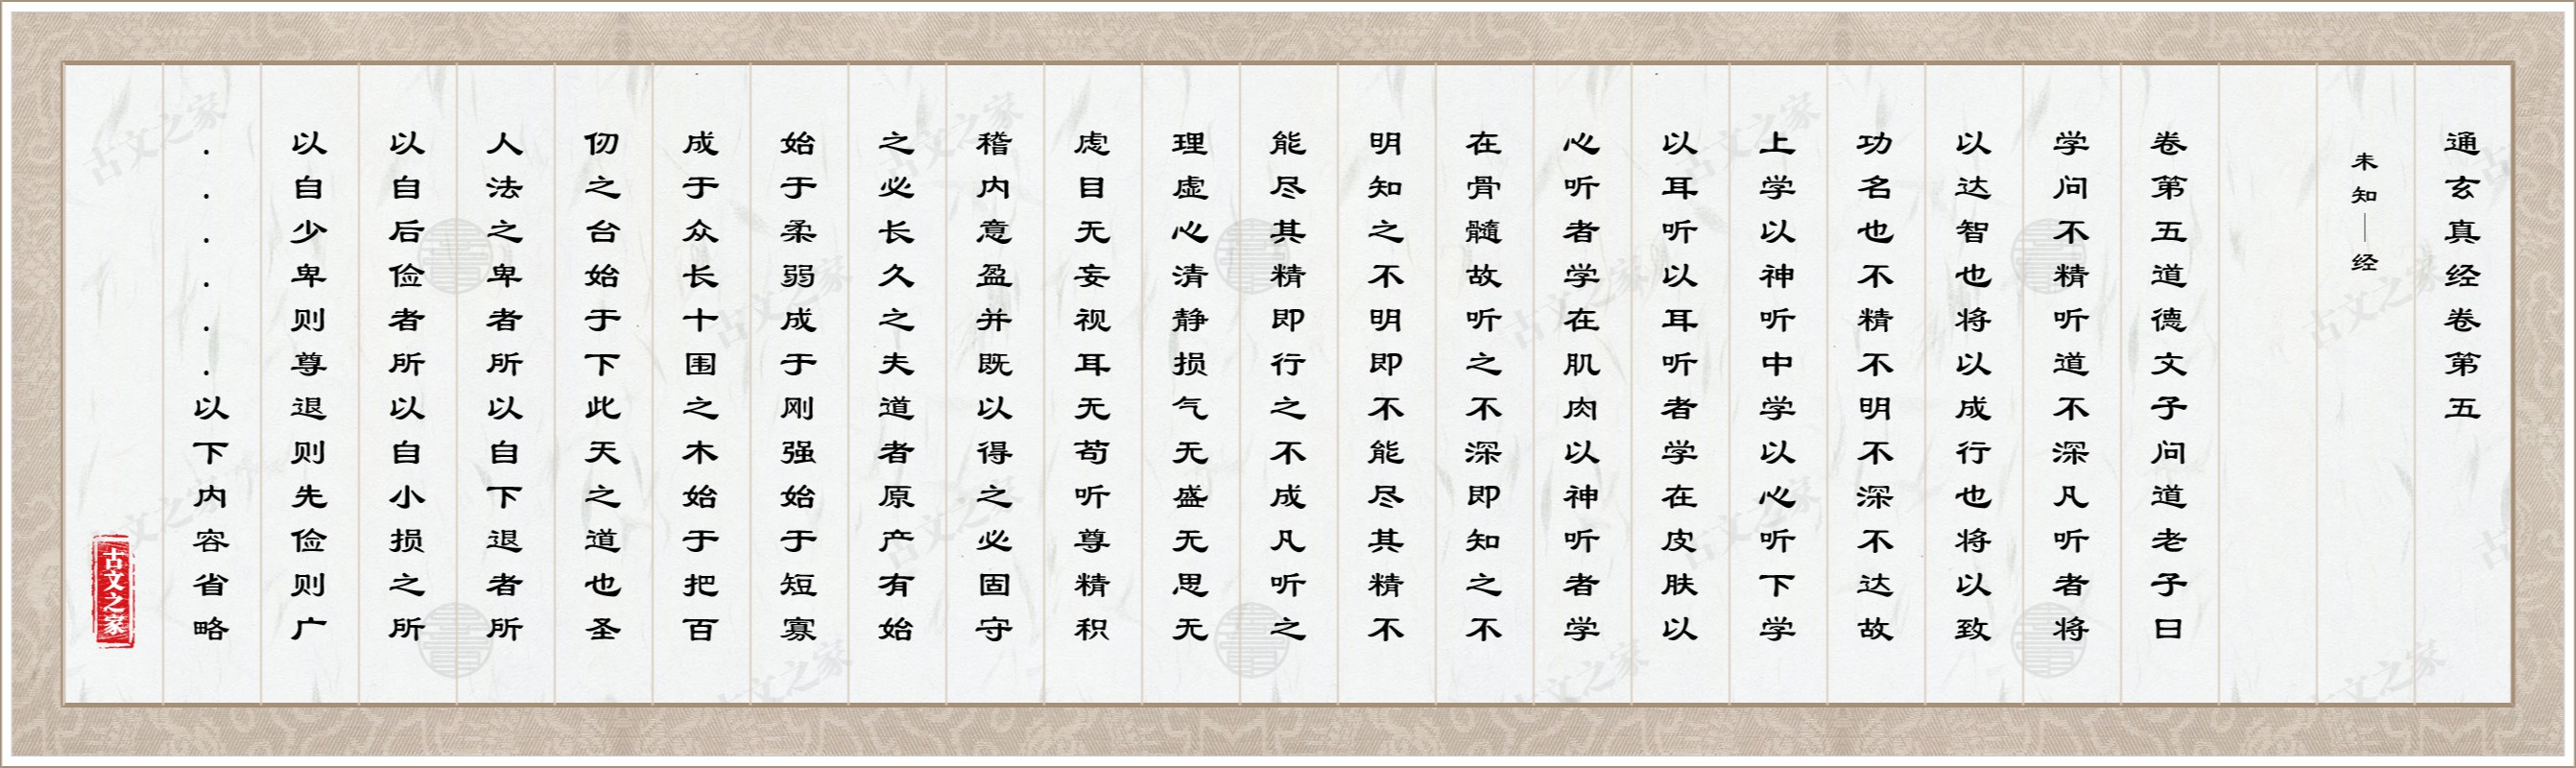 通玄真经卷第五
未知｜经
卷第五道德文子问道老子曰
学问不精听道不深凡听者将
以达智也将以成行也将以致
功名也不精不明不深不达故
上学以神听中学以心听下学
以耳听以耳听者学在皮肤以
心听者学在肌肉以神听者学
在骨髓故听之不深即知之不
明知之不明即不能尽其精不
能尽其精即行之不成凡听之
理虚心清静损气无盛无思无
虑目无妄视耳无苟听尊精积
稽内意盈并既以得之必固守
之必长久之夫道者原产有始
始于柔弱成于刚强始于短寡
成于众长十围之木始于把百
仞之台始于下此天之道也圣
人法之卑者所以自下退者所
以自后俭者所以自小损之所
以自少卑则尊退则先俭则广
......以下内容省略
古文之家